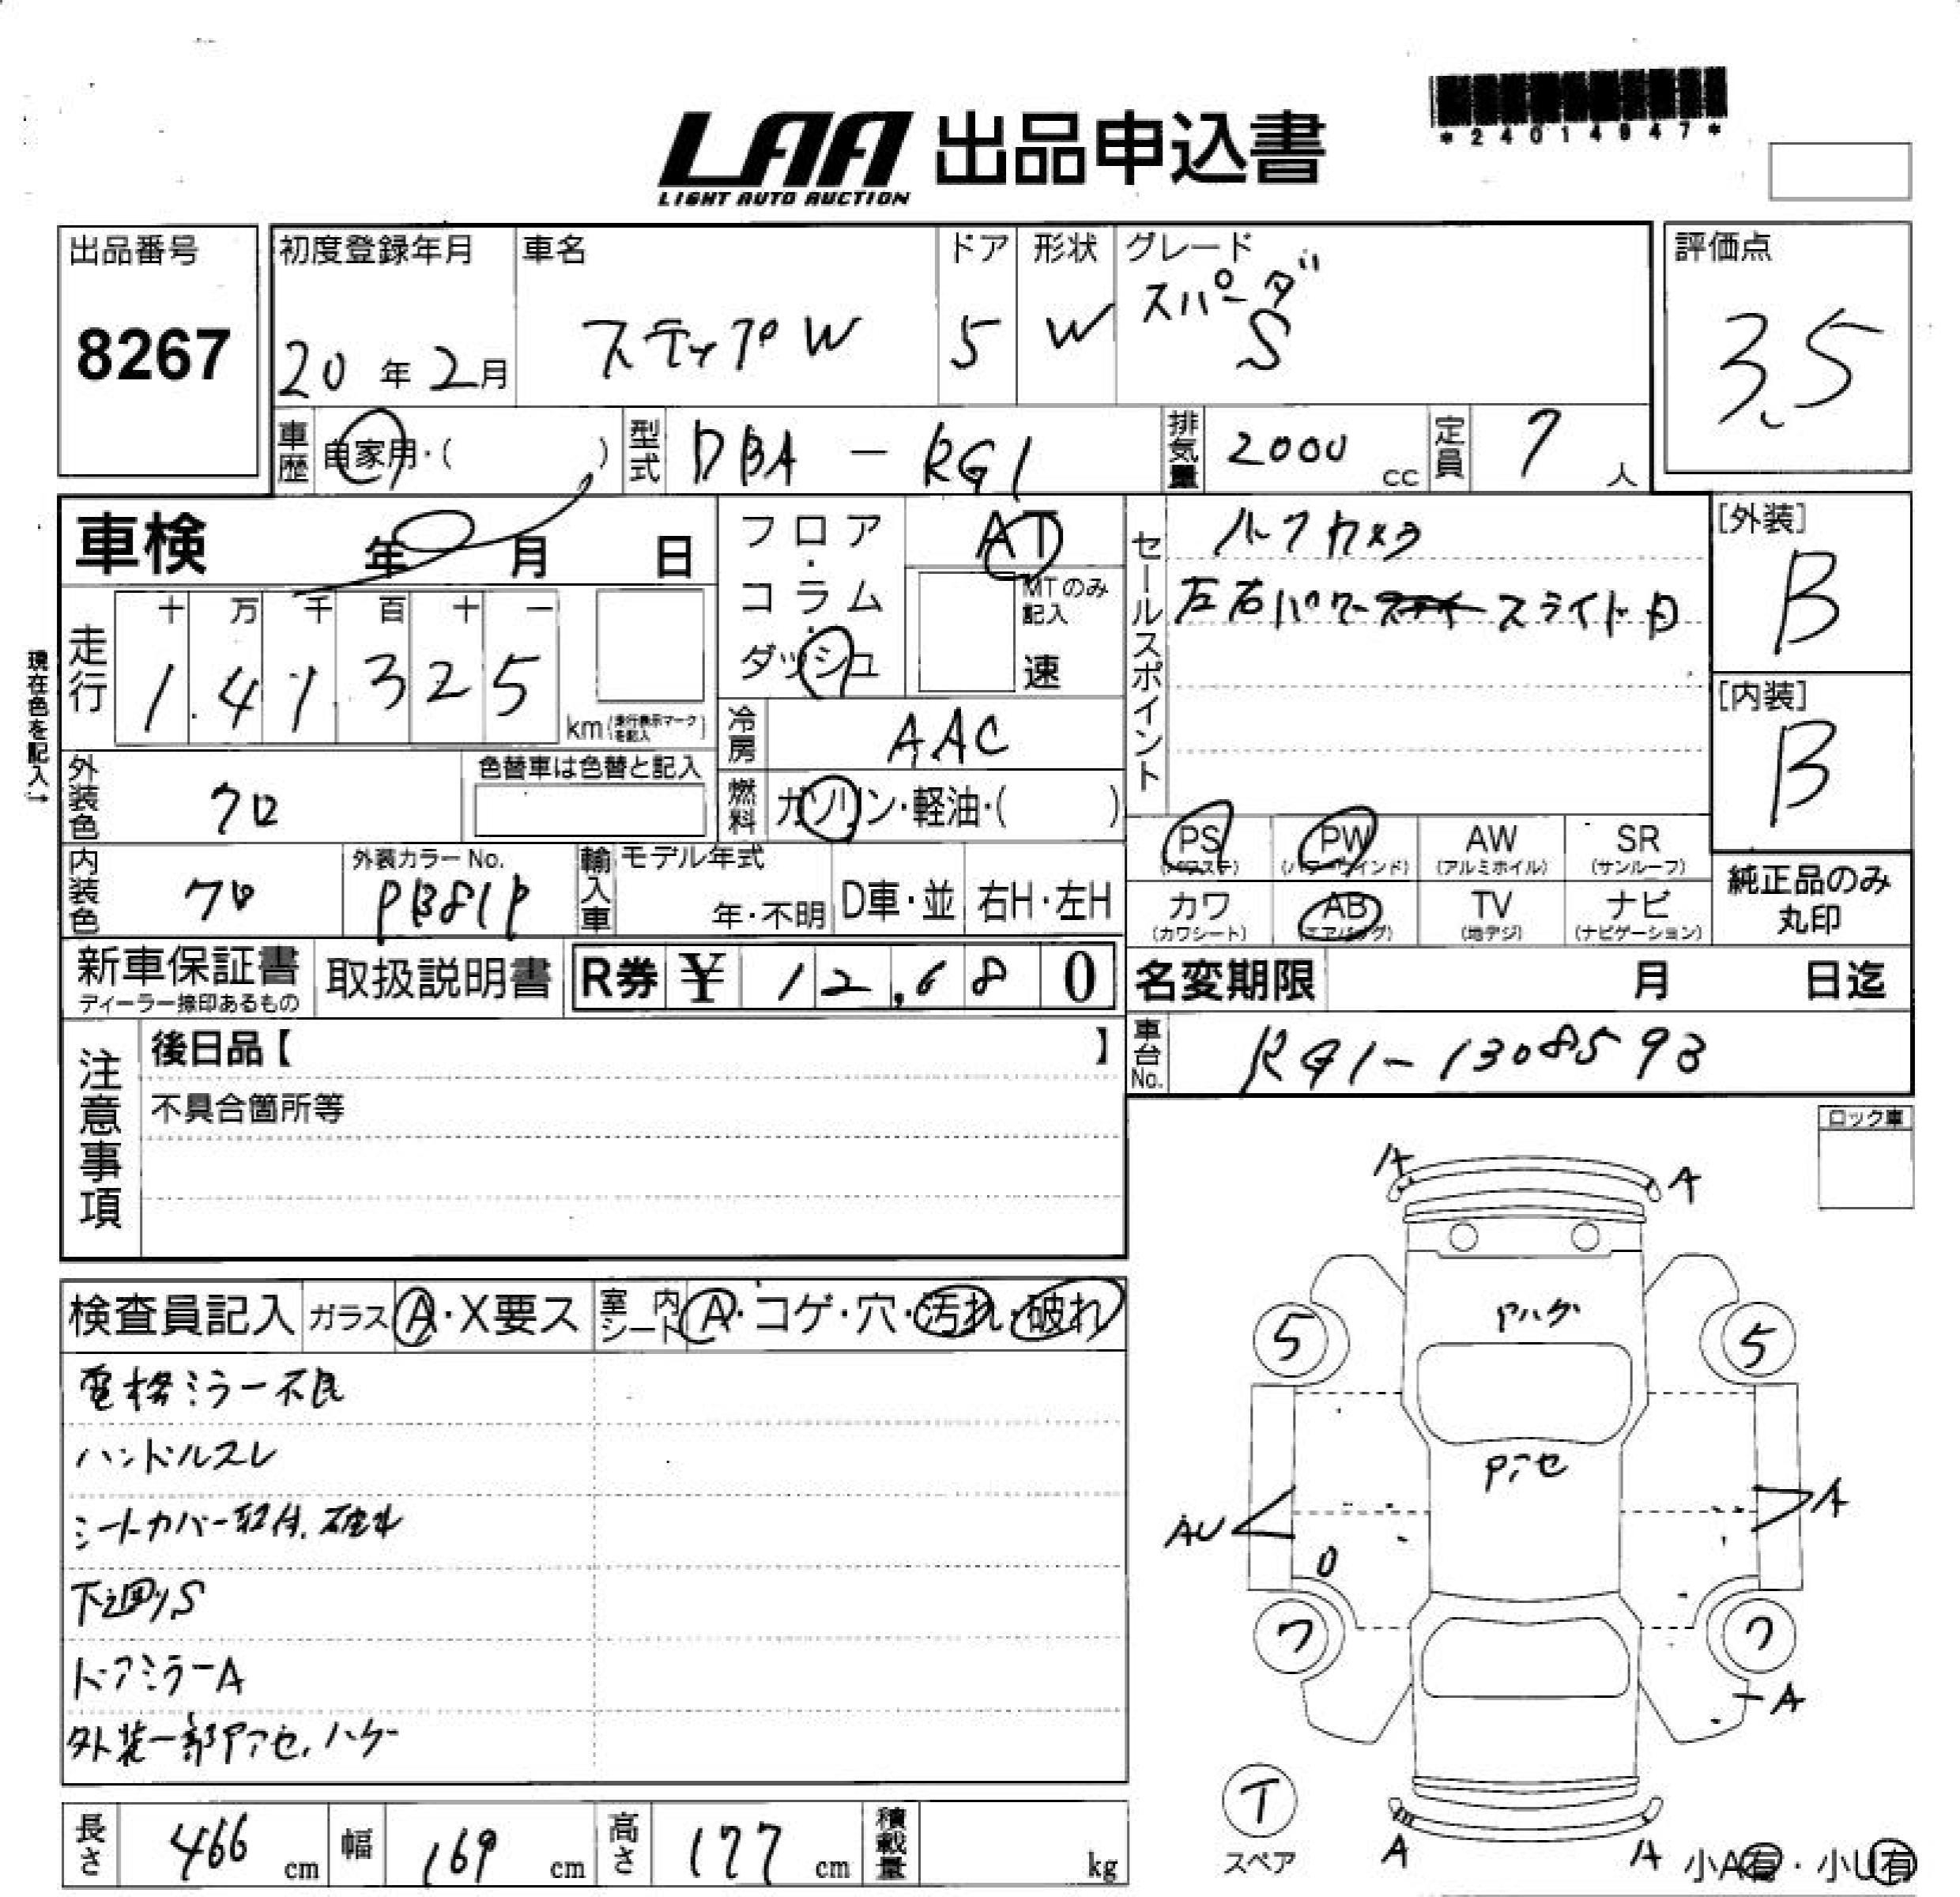 LAA 出品申込書
LIGHT AUTO AUCTION
*24014947*
出品番号
8267
初度登録年月
20年2月
車名
ステップW
ドア
5
形状
W
グレード
スパーダ
S
評価点
3.5
車歴
自家用・( )
型式
DBA-RG1
排気量
2000cc
定員
7人
車検 年 月 日
フロア・コラム・ダッシュ
AT
MTのみ記入
速
セールスポイント
左右パワースライド
[外装]
B
[内装]
B
現在色を記入→
走行
十 万 千 百 十 一
1 4 1 3 2 5
km(走行表示マークを記入)
冷房
AAC
燃料
ガソリン・軽油・( )
外装色
クロ
色替車は色替と記入
内装色
クロ
外装カラーNo.
PB81P
輸入車
モデル年式
年・不明
D車・並
右H・左H
PS
(パワステ)
PW
(パワーウインド)
AW
(アルミホイル)
SR
(サンルーフ)
カワ
(カワシート)
AB
(エアバッグ)
TV
(地デジ)
ナビ
(ナビゲーション)
純正品のみ
丸印
新車保証書
ディーラー捺印あるもの
取扱説明書
R券 ¥ 12,680
名変期限 月 日迄
車台No.
RG1-1308593
注意事項
後日品【 】
不具合箇所等
ロック車
検査員記入
ガラス
A・X要ス
室内シート
A・コゲ・穴・汚れ・破れ
電格ミラー不良
ハンドルスレ
シートカバー取付、破れ
下廻りS
ドアミラーA
外装一部Pアセ、ハゲ
A
A
Pハゲ
5
5
Pアセ
AU
A
0
7
7
A
T
スペア
A
A
小A有・小U有
長さ
466cm
幅
169cm
高さ
177cm
積載量
kg